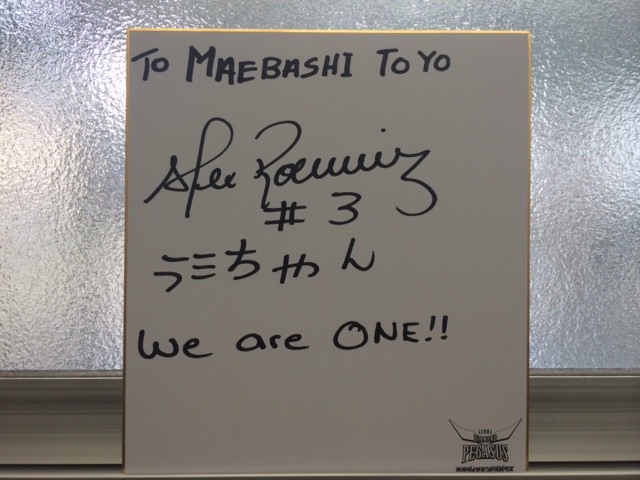 TO MAEBASHI TOYO
Alex Ramirez
# 3
ラミちゃん
We are ONE!!
GUNMA
DIAMOND
PEGASUS